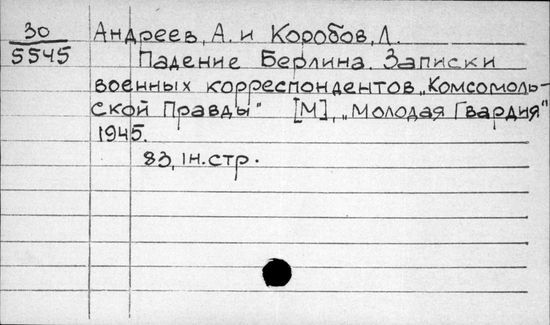 30 Андреев, А. и Коробов, Л.
5545 Падение Берлина. Записки
военных корреспондентов „Комсомоль-
ской Правды" [М], „Молодая Гвардия"
1945.
83, 1н.стр.